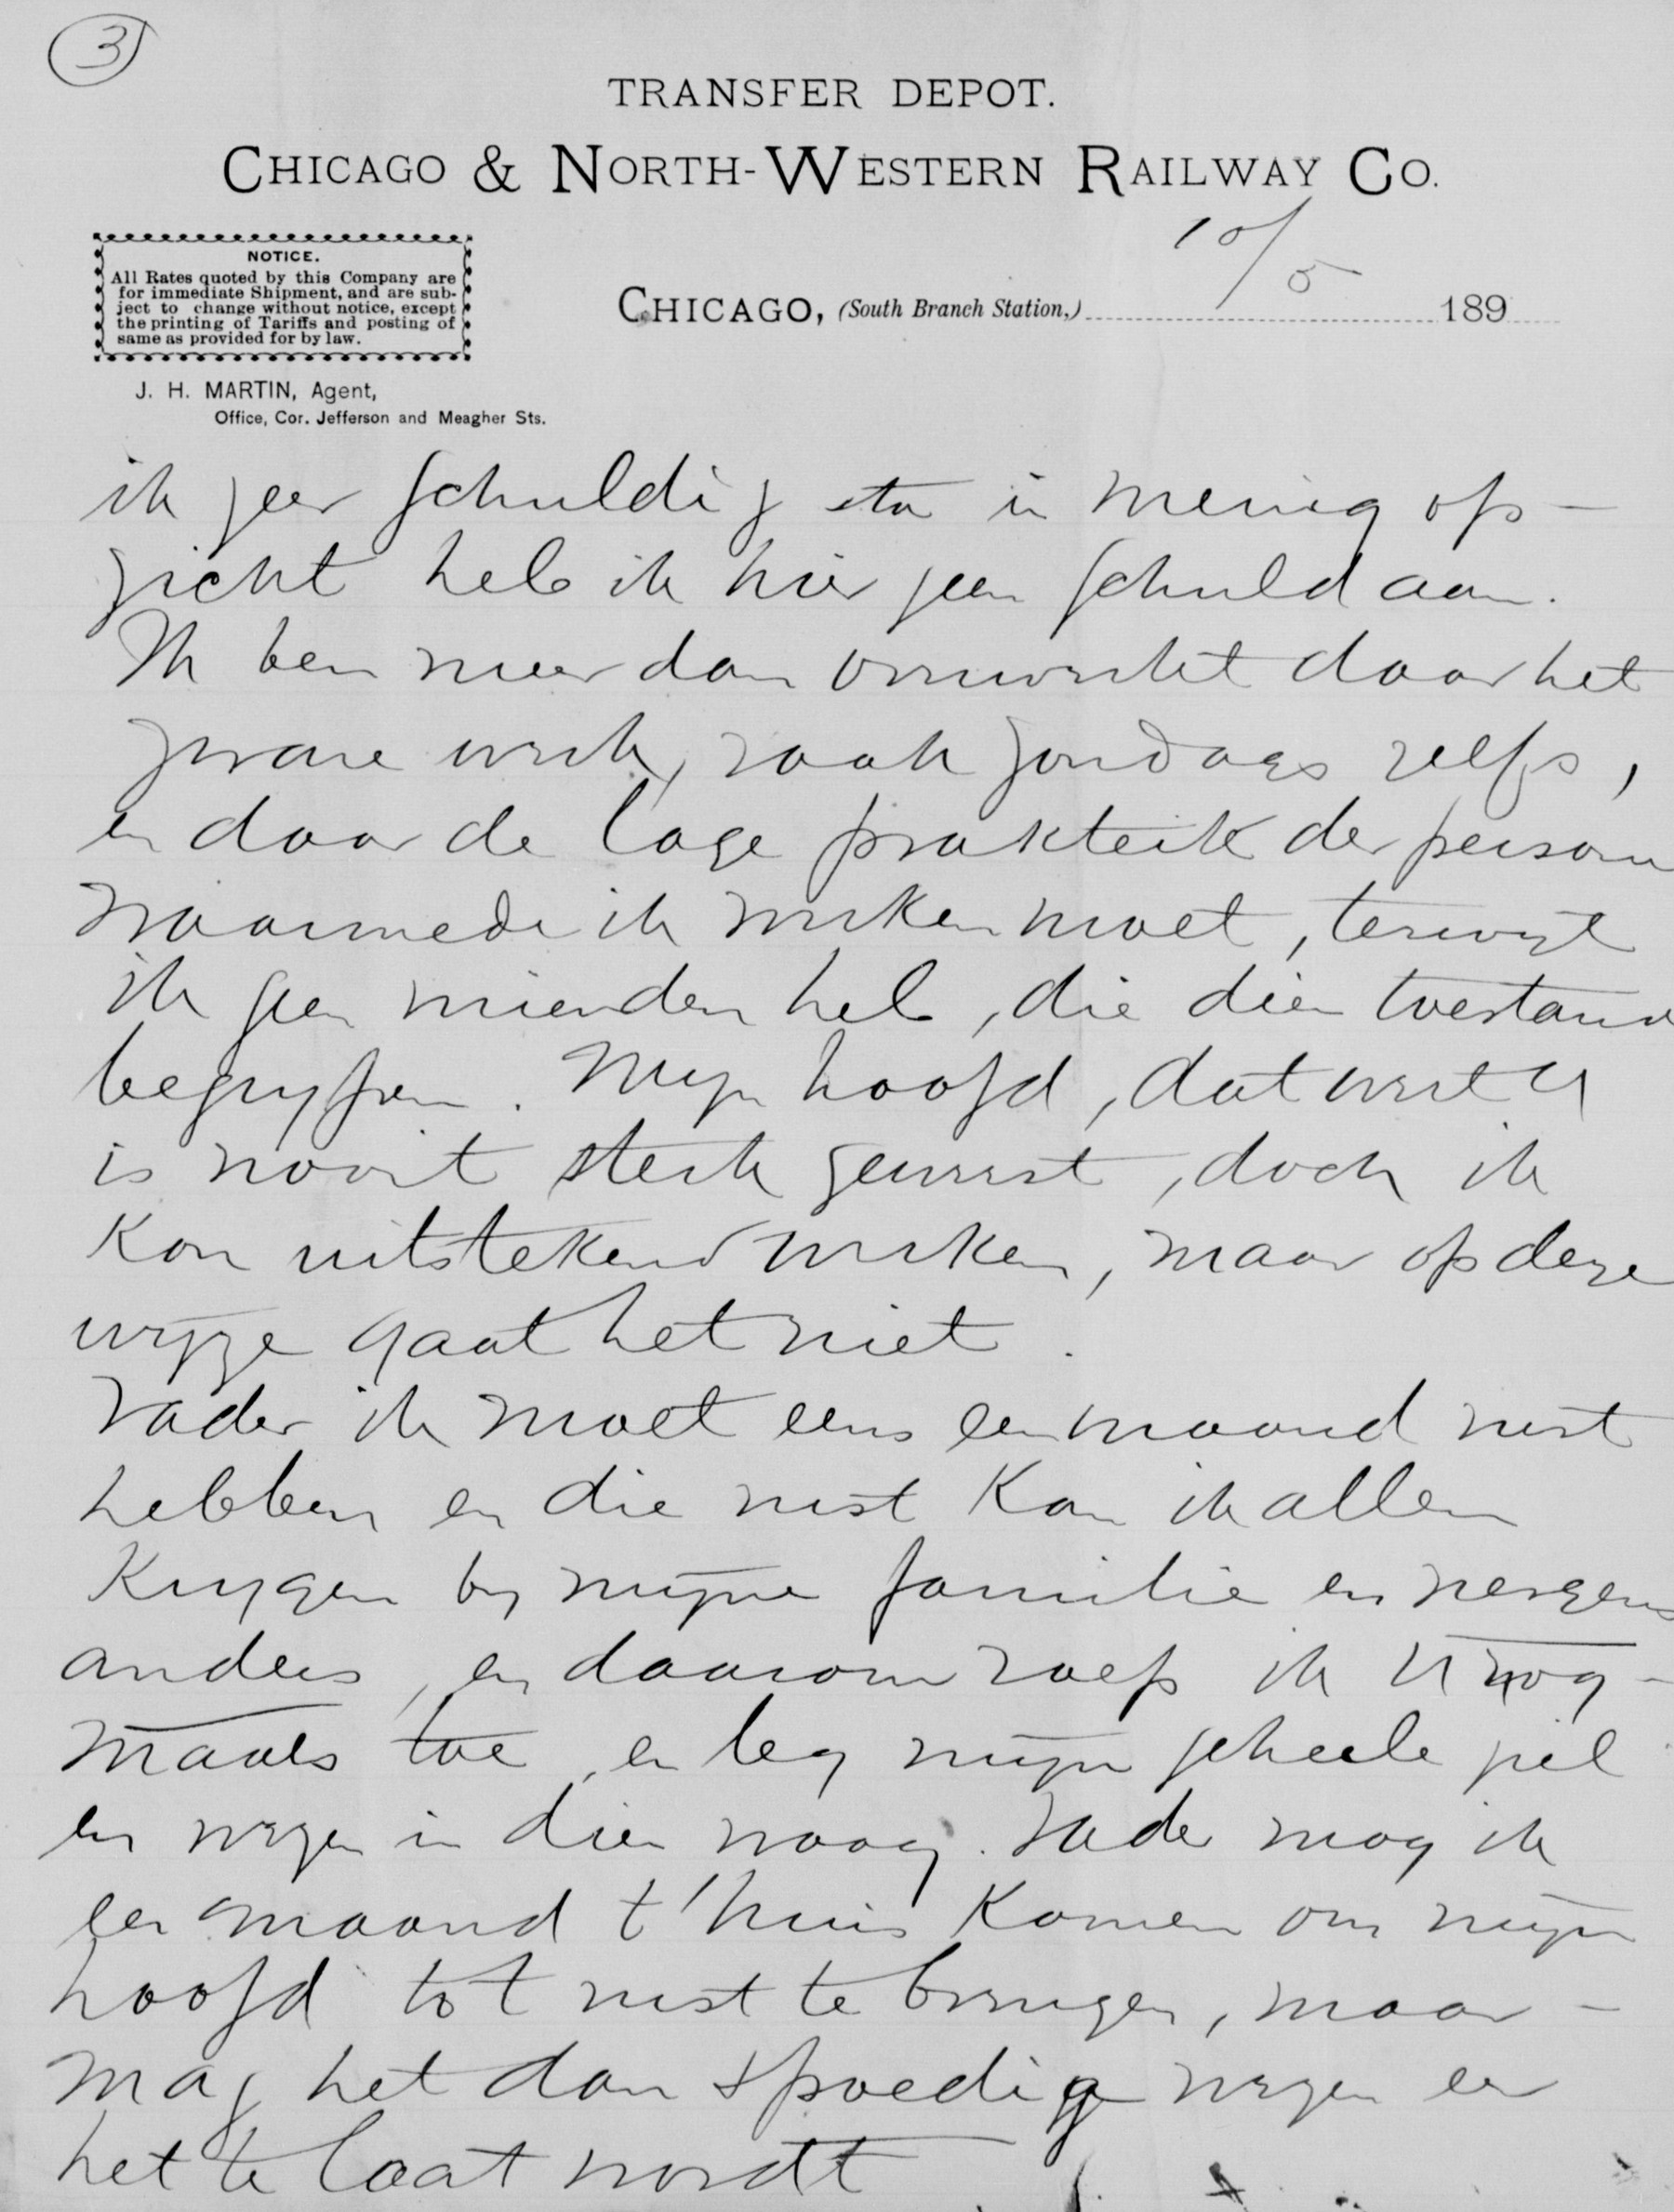 3
TRANSFER DEPOT.
CHICAGO & NORTH-WESTERN RAILWAY CO.
NOTICE.
All Rates quoted by this Company are
for immediate Shipment, and are sub-
ject to change without notice, except
the printing of Tariffs and posting of
same as provided for by law.
J. H. MARTIN, Agent,
Office, Cor. Jefferson and Meagher Sts.
10/5
CHICAGO, (South Branch Station,) 189
ik zeer schuldig sta in menig op-
zicht heb ik hier geen schuld aan.
Ik ben meer dan overwerkt door het
zware werk, vaak zondags zelfs,
en door de lage prakteik der persoon
waarmede ik werken moet, terwyl
ik geen vrienden heb, die dien toestand
begrypen. Myn hoofd, dat weet U
is nooit sterk geweest, doch ik
kon uitstekend werken, maar op deze
wyze gaat het niet.
Vader ik moet eens een maand rust
hebben en die rust kan ik alleen
krygen by myne familie en nergens
anders, en daarom roep ik U nog-
maals toe, en leg myn geheele ziel
en wezen in die vraag. Vader mag ik
een maand t'huis komen om myn
hoofd tot rust te brengen, maar -
mag het dan spoedig wezen eer
het te laat wordt